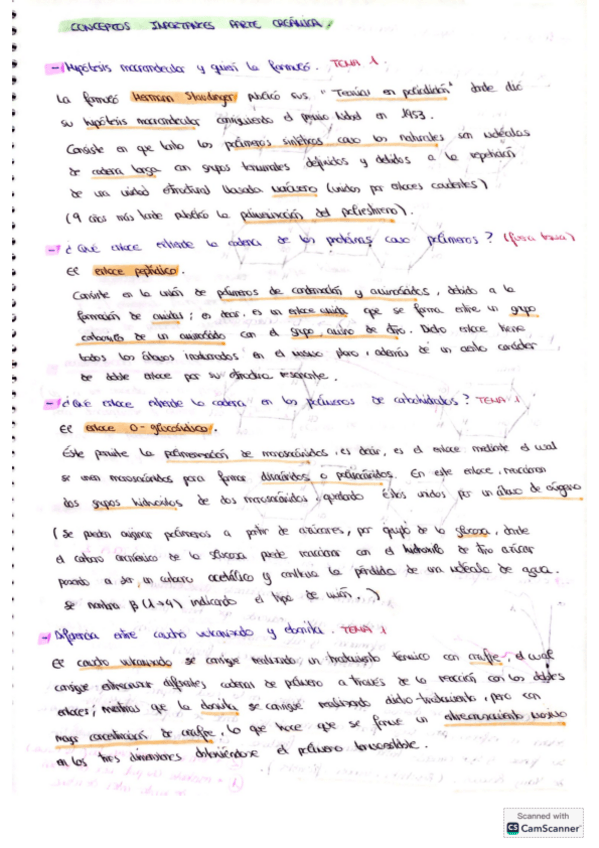 CONCEPTOS IMPORTANTES PARTE ORGÁNICA.
- Hipótesis macromolecular y quien la formuló. TEMA 1.
La formuló Hermann Staudinger publicó sus "Teorías en donde dió
su hipótesis macromolecular consiguiendo el premio Nobel en 1953.
Consiste en que tanto los polímeros sintéticos como los naturales son moléculas
de cadena larga con grupos terminales definidos y debidos a la repetición
de una unidad estructural llamada monómero (unidos por enlaces covalentes)
(9 años más tarde publicó la polimerización del poliestireno).
- ¿Qué enlace extiende la cadena de las proteínas como polímeros? (
El enlace peptídico.
Consiste en la unión de polímeros de condensación y aminoácidos, debido a la
formación de amidas; es decir, es un enlace amida que se forma entre un grupo
carboxilo de un aminoácido con el grupo amino de otro. Dicho enlace tiene
todos los átomos involucrados en el mismo plano, además de un cierto carácter
de doble enlace por su estructura resonante.
- ¿Qué enlace extiende la cadena en los polímeros de carbohidratos? TEMA 1
El enlace O-glucosídico.
Éste permite la polimerización de monosacáridos, es decir, es el enlace mediante el cual
se unen monosacáridos para formar disacáridos o polisacáridos. En este enlace, reaccionan
dos grupos hidroxilos de dos monosacáridos, quedando éstos unidos por un átomo de oxígeno
(Se pueden originar polímeros a partir de azúcares, por ejemplo de la glucosa, donde
el carbono anomérico de la glucosa puede reaccionar con el hidroxilo de otro azúcar
pasando a ser un carbono acetálico y conlleva la pérdida de una molécula de agua.
Se nombra β(1→4) indicando el tipo de unión.)
- Diferencia entre caucho vulcanizado y ebonita. TEMA 1
El caucho vulcanizado se consigue realizando un tratamiento térmico con azufre, el cual
consigue entrecruzar diferentes cadenas de polímero a través de la reacción con los dobles
enlaces; mientras que la ebonita se consigue realizando dicho tratamiento, pero con
mayor concentración de azufre, lo que hace que se forme un entrecruzamiento masivo
en las tres dimensiones obteniéndose el polímero termoestable.
Scanned with
CS CamScanner